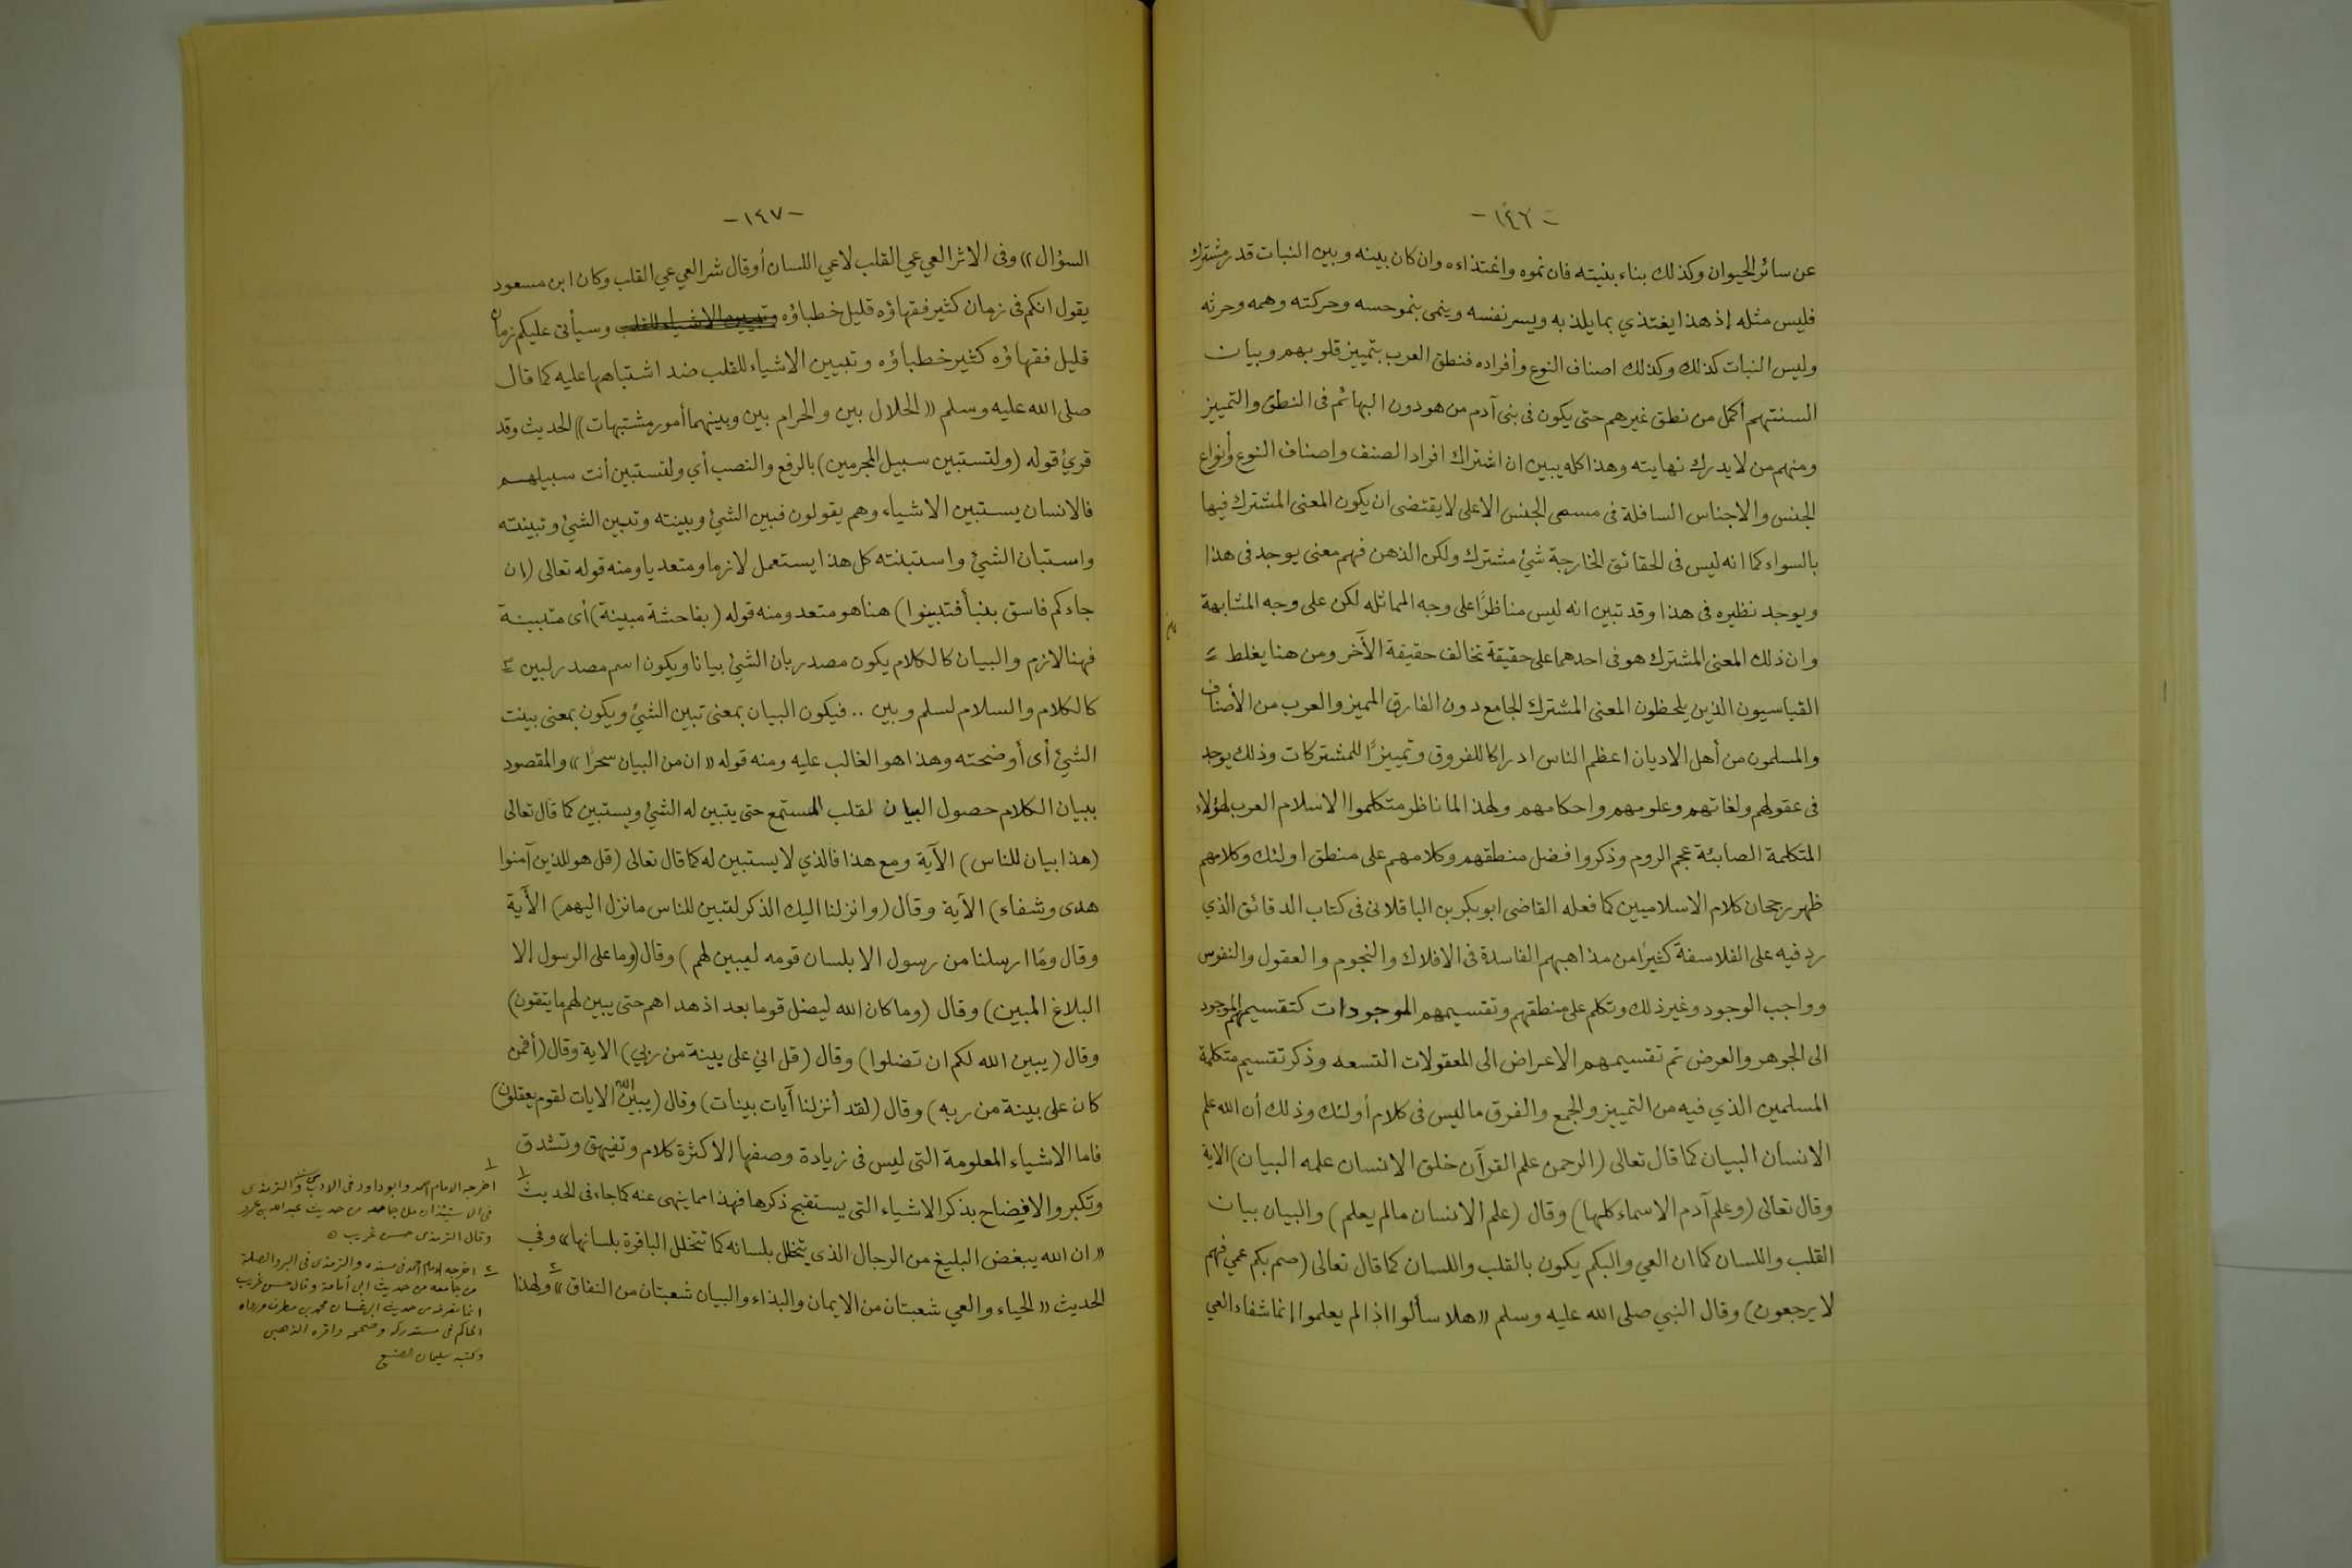 -١٤٦-
عن سائر الحيوان وكذلك بناء بنيته فان نموه واغتذاءه وان كان بينه وبين النبات قدر مشترك
فليس مثله إذ هذا يغتذي بما يلذ به ويسر نفسه وينمى بنمو حسه وحركته وهمه وحرثه
وليس النبات كذلك وكذلك اصناف النوع وأفراده فنطق العرب بتمييز قلوبهم وبيان
السنتهم أكمل من نطق غيرهم حتى يكون فى بنى آدم من هو دون البهائم فى النطق والتمييز
ومنهم من لا يدرك نهايته وهذا كله يبين ان اشتراك افراد الصنف واصناف النوع وأنواع
الجنس والاجناس السافلة فى مسمى الجنس الاعلى لا يقتضى ان يكون المعنى المشترك فيها
بالسواء كما انه ليس فى الحقائق الخارجة شئ مشترك ولكن الذهن فهم معنى يوجد فى هذا
ويوجد نظيره فى هذا وقد تبين انه ليس مناظرًا على وجه المماثله لكن على وجه المشابهة
وان ذلك المعنى المشترك هو فى احدهما على حقيقة تخالف حقيقة الآخر ومن هنا يغلط
القياسيون الذين يلحظون المعنى المشترك الجامع دون الفارق المميز والعرب من الأصناف
والمسلمون من أهل الاديان اعظم الناس ادراكا للفروق وتمييزًا للمشتركات وذلك يوجد
فى عقولهم ولغاتهم وعلومهم واحكامهم ولهذا لما ناظر متكلموا الاسلام العرب لهؤلاء
المتكلمة الصابئة عجم الروم وذكروا فضل منطقهم وكلامهم على منطق اولئك وكلامهم
ظهر رجحان كلام الاسلاميين كما فعله القاضى ابو بكر بن الباقلانى فى كتاب الدقائق الذي
رد فيه على الفلاسفة كثيرًا من مذاهبهم الفاسدة فى الافلاك والنجوم والعقول والنفوس
وواجب الوجود وغير ذلك وتكلم على منطقهم وتقسيمهم الموجودات كتقسيمهم الموجود
الى الجوهر والعرض ثم تقسيمهم الاعراض الى المعقولات التسعه وذكر تقسيم متكلمة
المسلمين الذي فيه من التمييز والجمع والفرق ما ليس فى كلام أولئك وذلك أن الله علم
الانسان البيان كما قال تعالى (الرحمن علم القرآن خلق الانسان علمه البيان) الاية
وقال تعالى (وعلم آدم الاسماء كلها) وقال (علم الانسان مالم يعلم) والبيان بيان
القلب واللسان كما ان العي والبكم يكون بالقلب واللسان كما قال تعالى (صم بكم عمي فهم
لا يرجعون) وقال النبي صلى الله عليه وسلم «هلا سألوا اذا لم يعلموا إنما شفاء العي
-١٤٧-
السؤال» وفى الاثر العي عي القلب لا عي اللسان أو قال شر العي عي القلب وكان ابن مسعود
يقول انكم فى زمان كثير فقهاؤه قليل خطباؤه وتبيين الاشياء للقلب وسيأتى عليكم زمان
قليل فقهاؤه كثير خطباؤه وتبيين الاشياء للقلب ضد اشتباهها عليه كما قال
صلى الله عليه وسلم «الحلال بين والحرام بين وبينهما أمور مشتبهات» الحديث وقد
قرئ قوله (ولتستبين سبيل المجرمين) بالرفع والنصب أي ولتستبين أنت سبيلهم
فالانسان يستبين الاشياء وهم يقولون فبين الشئ وبينته وتبين الشئ وتبينته
واستبان الشئ واستبنته كل هذا يستعمل لازما ومتعديا ومنه قوله تعالى (ان
جاءكم فاسق بنبأ فتبينوا) هنا هو متعد ومنه قوله (بفاحشة مبينة) أى متبينة
فهنا لازم والبيان كالكلام يكون مصدر بان الشئ بيانا ويكون اسم مصدر لبين
كالكلام والسلام لسلم وبين .. فيكون البيان بمعنى تبين الشئ ويكون بمعنى بينت
الشئ أى أوضحته وهذا هو الغالب عليه ومنه قوله «ان من البيان سحرًا» والمقصود
ببيان الكلام حصول البيان لقلب المستمع حتى يتبين له الشئ ويستبين كما قال تعالى
(هذا بيان للناس) الآية ومع هذا فالذي لا يستبين له كما قال تعالى (قل هو للذين آمنوا
هدى وشفاء) الآية وقال (وانزلنا اليك الذكر لتبين للناس ما نزل اليهم) الأية
وقال وما ارسلنا من رسول الا بلسان قومه ليبين لهم) وقال (وما على الرسول إلا
البلاغ المبين) وقال (وما كان الله ليضل قوما بعد اذ هداهم حتى يبين لهم ما يتقون)
وقال (يبين الله لكم ان تضلوا) وقال (قل اني على بينة من ربي) الاية وقال (أفمن
كان على بينة من ربه) وقال (لقد أنزلنا آيات بينات) وقال (يبين الله الايات لقوم يعقلون)
فاما الاشياء المعلومة التى ليس فى زيادة وصفها إلا كثرة كلام وتفيهق وتشدق
وتكبر والافضاح بذكر الاشياء التى يستقبح ذكرها فهذا مما ينهى عنه كما جاء فى الحديث ١
«ان الله يبغض البليغ من الرجال الذى يتخلل بلسانه كما تتخلل الباقرة بلسانها» وفي
الحديث «الحياء والعي شعبتان من الايمان والبذاء والبيان شعبتان من النفاق» ٢ ولهذا
١ اخرجه الامام احمد وابو داود فى الادب والترمذى
فى الاستيذان من حديث عبدالله بن عمرو
وقال الترمذى حسن غريب
٢ اخرجه الامام احمد فى مسنده والترمذى فى البر والصلة
من جامعه من حديث ابى أمامة وقال حسن غريب
انما نعرفه من حديث ابى غسان محمد بن مطرف ورواه
الحاكم فى مستدركه وصححه واقره الذهبى
وكتبه سليمان الصنيع